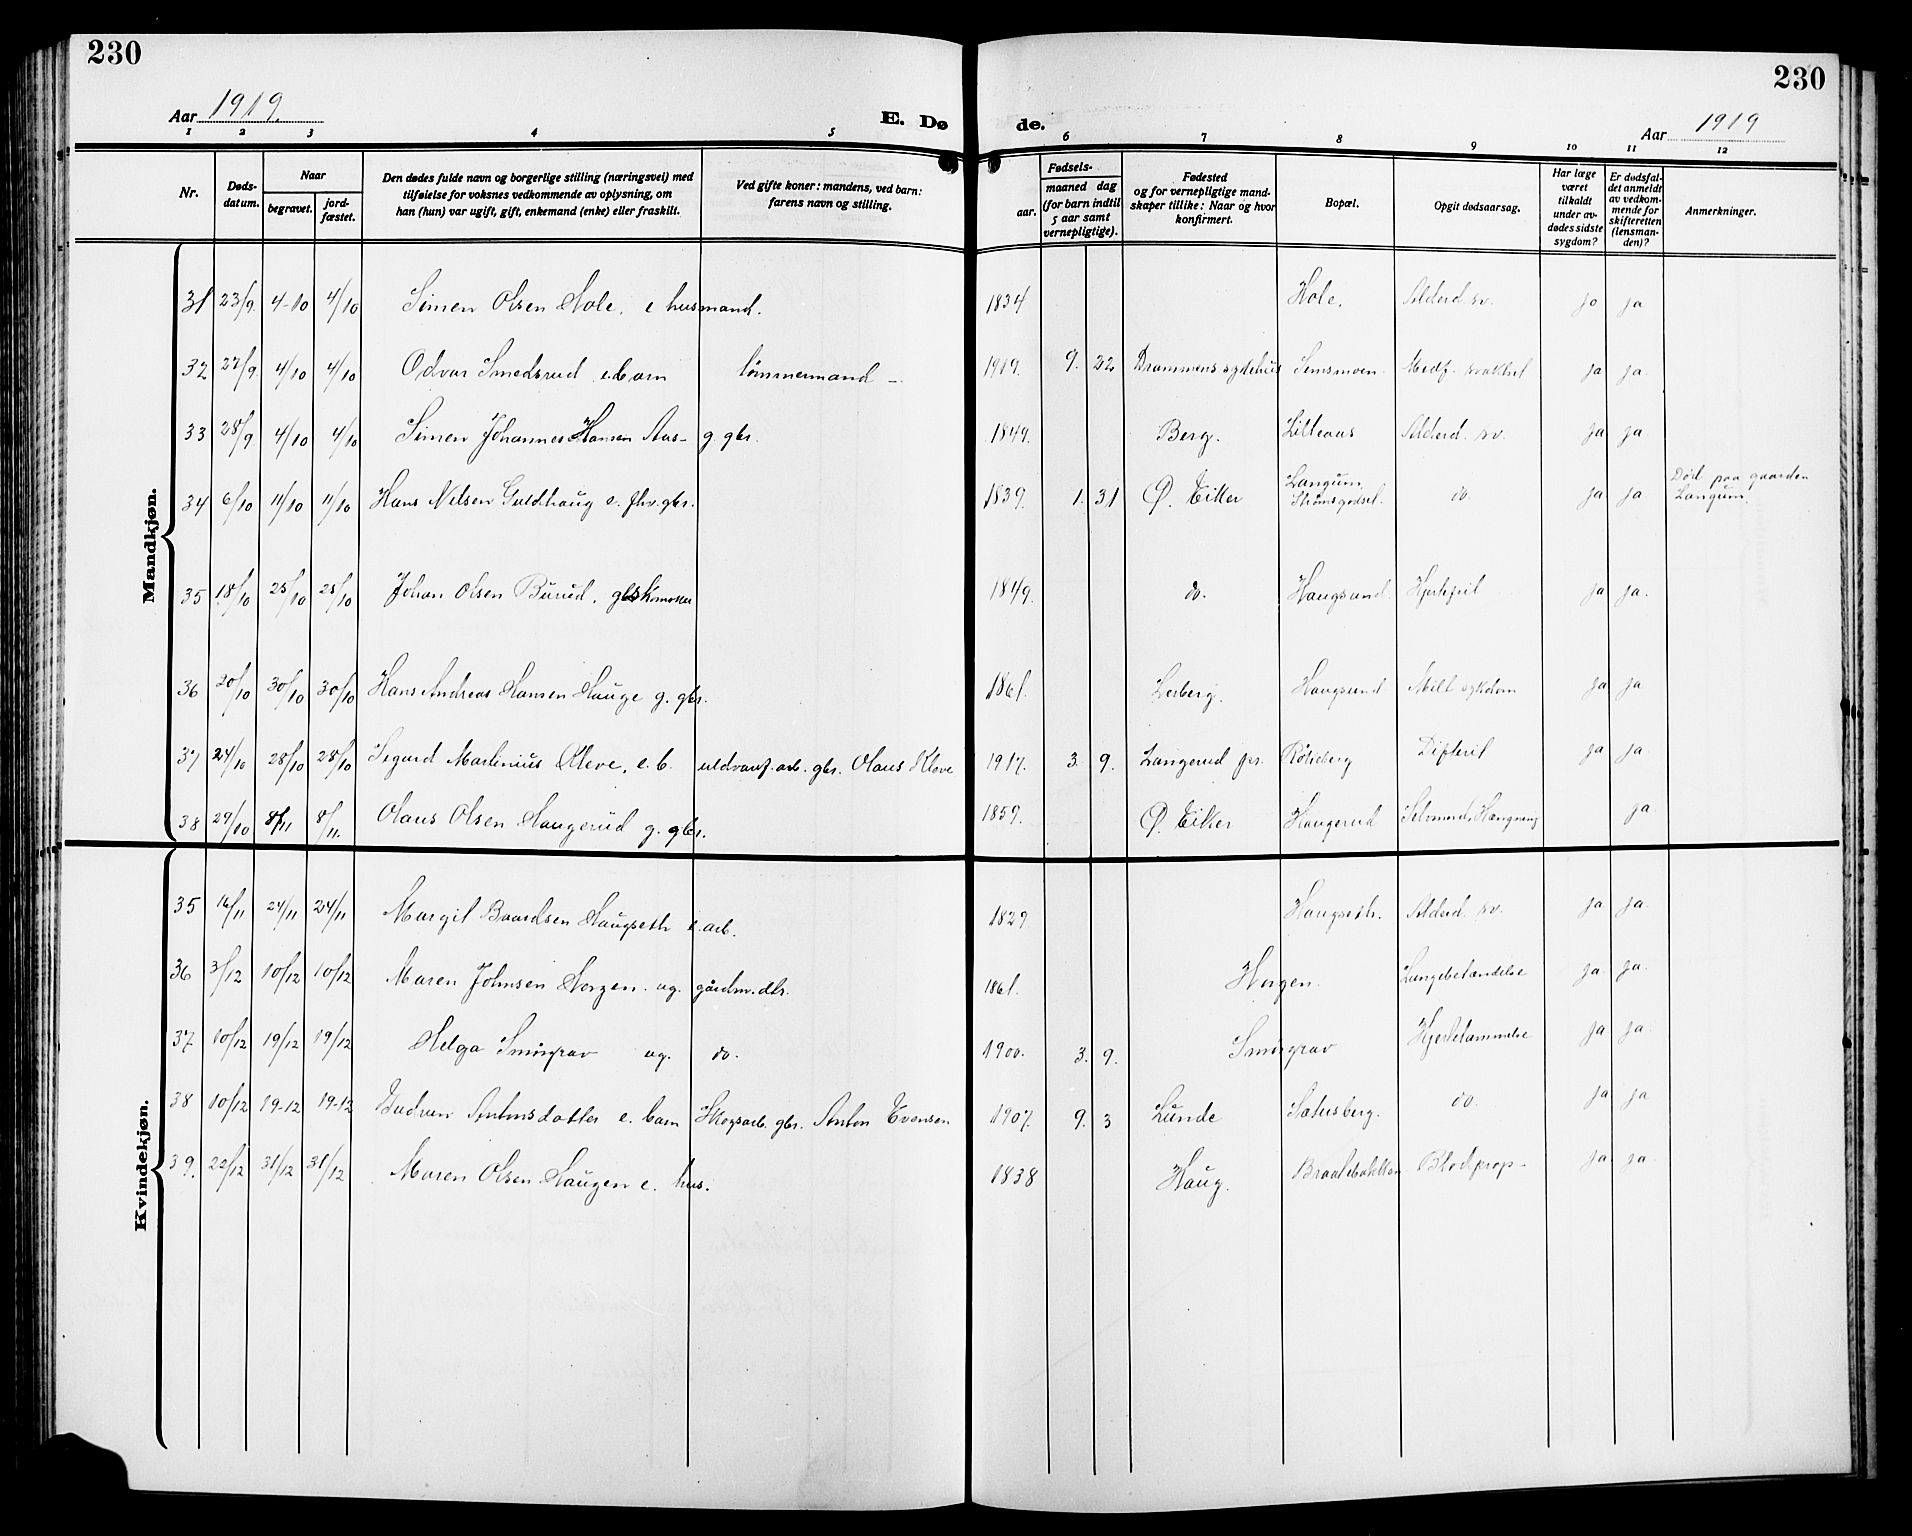 230
230
Aar 1919.
E. Døde.
Aar 1919
1 2 3 4 5 6 7 8 9 10 11 12
Nr.
Døds-
datum.
Naar
begravet.
jord-
fæstet.
Den dødes fulde navn og borgerlige stilling (næringsvei) med
tilføielse for voksnes vedkommende av oplysning, om
han (hun) var ugift, gift, enkemand (enke) eller fraskilt.
Ved gifte koner: mandens, ved barn:
farens navn og stilling.
Fødsels-
aar.
maaned dag
(for barn indtil
5 aar samt
vernepligtige).
Fødested
og for vernepligtige mand-
skaper tillike: Naar og hvor
konfirmert.
Bopæl.
Opgit dødsaarsag.
Har læge
været
tilkaldt
under av-
dødes sidste
sygdom?
Er dødsfal-
det anmeldt
av vedkom-
mende for
skifteretten
(lensman-
den)?
Anmerkninger.
Mandkjøn.
31 23/9. 4-10 4/10 Simen Olsen Hole. e husmand. 1834 Hole. Alderd. sv. ja ja
32 27/9. 4/10 4/10 Odvar Smedsrud e. barn tømmermand – 1919. 9. 22 Drammens sykehus Semsmoen Medf. svakhet ja ja
33 28/9 4/10 4/10 Simen Johannes Hansen Aas- g. gbr. 1849. Berg. Lilleaas Alderd. sv. ja ja
34 6/10 11/10 11/10 Hans Nilsen Guldhaug e. fhv. gbr. 1839. 1. 31 Ø. Eiker Langum, Strømsgodset. do. ja ja Død paa gaarden Langum.
35 18/10 25/10 25/10 Johan Olsen Burud. 1849. do. Haugsund. Hjertefeil ja ja.
36 20/10 30/10 30/10 Hans Andreas Hansen Hauge g. gbr. 1861. Lerberg. Haugsund Milt sykdom ja ja
37 24/10 28/10 28/10 Sigurd Martinius Kleve, e. b. uldvaref. arb. gbr. Olaus Kleve 1917. 3. 9. Langerud pr. Røkeberg Difterit ja ja.
38 29/10 8/11 8/11. Olaus Olsen Haugerud g. gbr. 1859. Ø. Eiker Haugerud Selvmord, Hængning ja
Kvindekjøn.
35 16/11 24/11 24/11 Margit Baardsen Haugseth e. arb. 1829 Haugseth. Alderd. sv. ja ja.
36 3/12 10/12 10/12 Maren Johnsen Horgen. ug. gårdm. dtr. 1861. Horgen. Lungebetændelse ja ja.
37 10/12 19/12 19/12 Helga Smörgrav ug. do. 1900. 3. 9. Smörgrav Hjertelammelse ja ja.
38 10/12 19-12 19-12 Gudrun Antonsdatter e. barn Skogsarb. gbr. Anton Evensen 1907. 9. 3 Lunde Satusberg. do. ja ja
39. 22/12 31/12 31/12 Maren Olsen Haugen e. hus. 1838 Haug. Blodprop – ja ja.